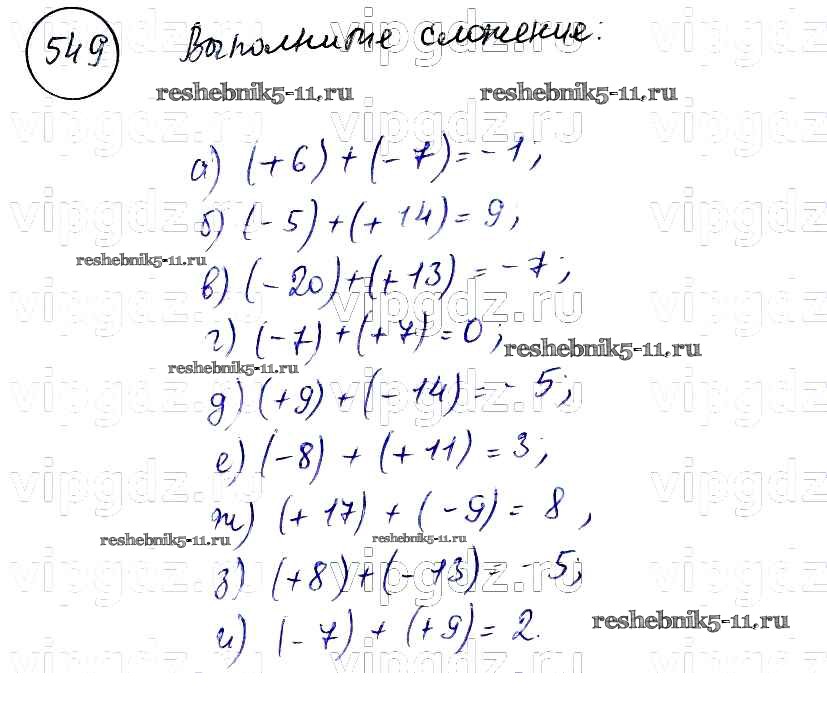 549 Выполните сложение:
reshebnik5-11.ru reshebnik5-11.ru
vipgdz.ru vipgdz.ru vipgdz.ru
а) (+6)+(-7)=-1;
б) (-5)+(+14)=9;
reshebnik5-11.ru
в) (-20)+(+13)=-7;
г) (-7)+(+7)=0;
reshebnik5-11.ru
reshebnik5-11.ru
д) (+9)+(-14)=-5;
е) (-8)+(+11)=3;
ж) (+17)+(-9)=8,
reshebnik5-11.ru reshebnik5-11.ru
з) (+8)+(-13)=-5;
и) (-7)+(+9)=2.
reshebnik5-11.ru